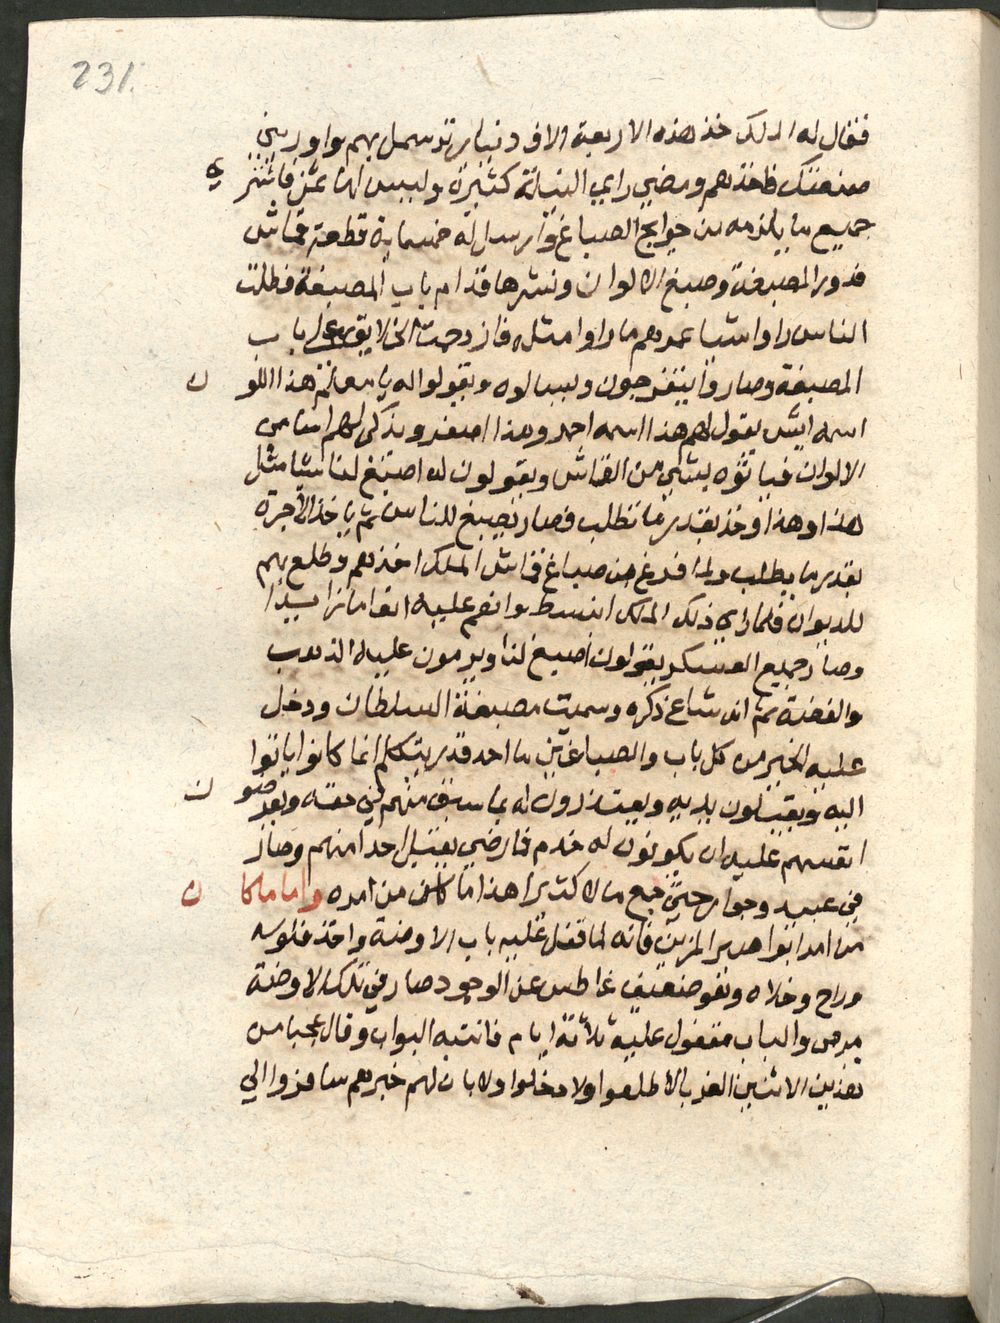 231.
فقال له الملك خذ هذه الاربعة الاف دنيار ترسمل بهم واوريني
صنعتك فاخذهم ومضي راي النيلة كثيرة وليس لها ثمن فاشتري
جميع ما يلزمه من حوايج الصباغ وارسل له خمسماية قطعة قماش
فدور المصبغة وصبغ الالوان ونشرها قدام باب المصبغة فطلت
الناس راوا شيا عمرهم ما راوا مثله فازدحمت الخلايق علي باب
المصبغة وصاروا يتفرجون ويسالوه ويقولوا له يا معلم هذا اللون
اسمه ايش يقول لهم هذا اسمه احمر وهذا اصفر ويذكر لهم اسامي
الالوان فياتوه بشي من القماش ويقولون له اصبغ لنا شيا مثل
هذا وهذا وخذ بقدر ما تطلب فصار يصبغ للناس ثم ياخذ الاجرة
بقدر ما يطلب ولما فرغ من صباغ قماش الملك اخذهم وطلع بهم
للديوان فلما راي ذلك الملك انبسط وانعم عليه انعاما زايدا
وصار جميع العسكر يقولون اصبغ لنا ويرمون عليه الذهب
والفضة ثم انه شاع ذكره وسميت مصبغة السلطان ودخل
عليه الخير من كل باب والصباغين ما احد قدر يتكلم انما كانوا ياتوا
اليه ويقبلون يديه ويعتذرون له بما سبق منهم في حقه ويعرضون
انفسهم عليه ان يكونون له خدم فما رضي يقبل احدا منهم وصار
في عبيد وجوار حتي جمع مالا كثيرا هذا ما كان من امره واما ما كان
من امر ابوا صير المزين فانه لما قفل عليه باب الاوضة واخذ فلوسه
وراح وخلاه وهو ضعيف غاطس عن الوجود صار في تلك الاوضة
مرمي والباب مقفول عليه ثلاثة ايام فانتبه البواب وقال عجبا من
هذين الاثنين الغربا لا طلعوا ولا دخلوا ولا بان لهم خبر هم سافروا الي